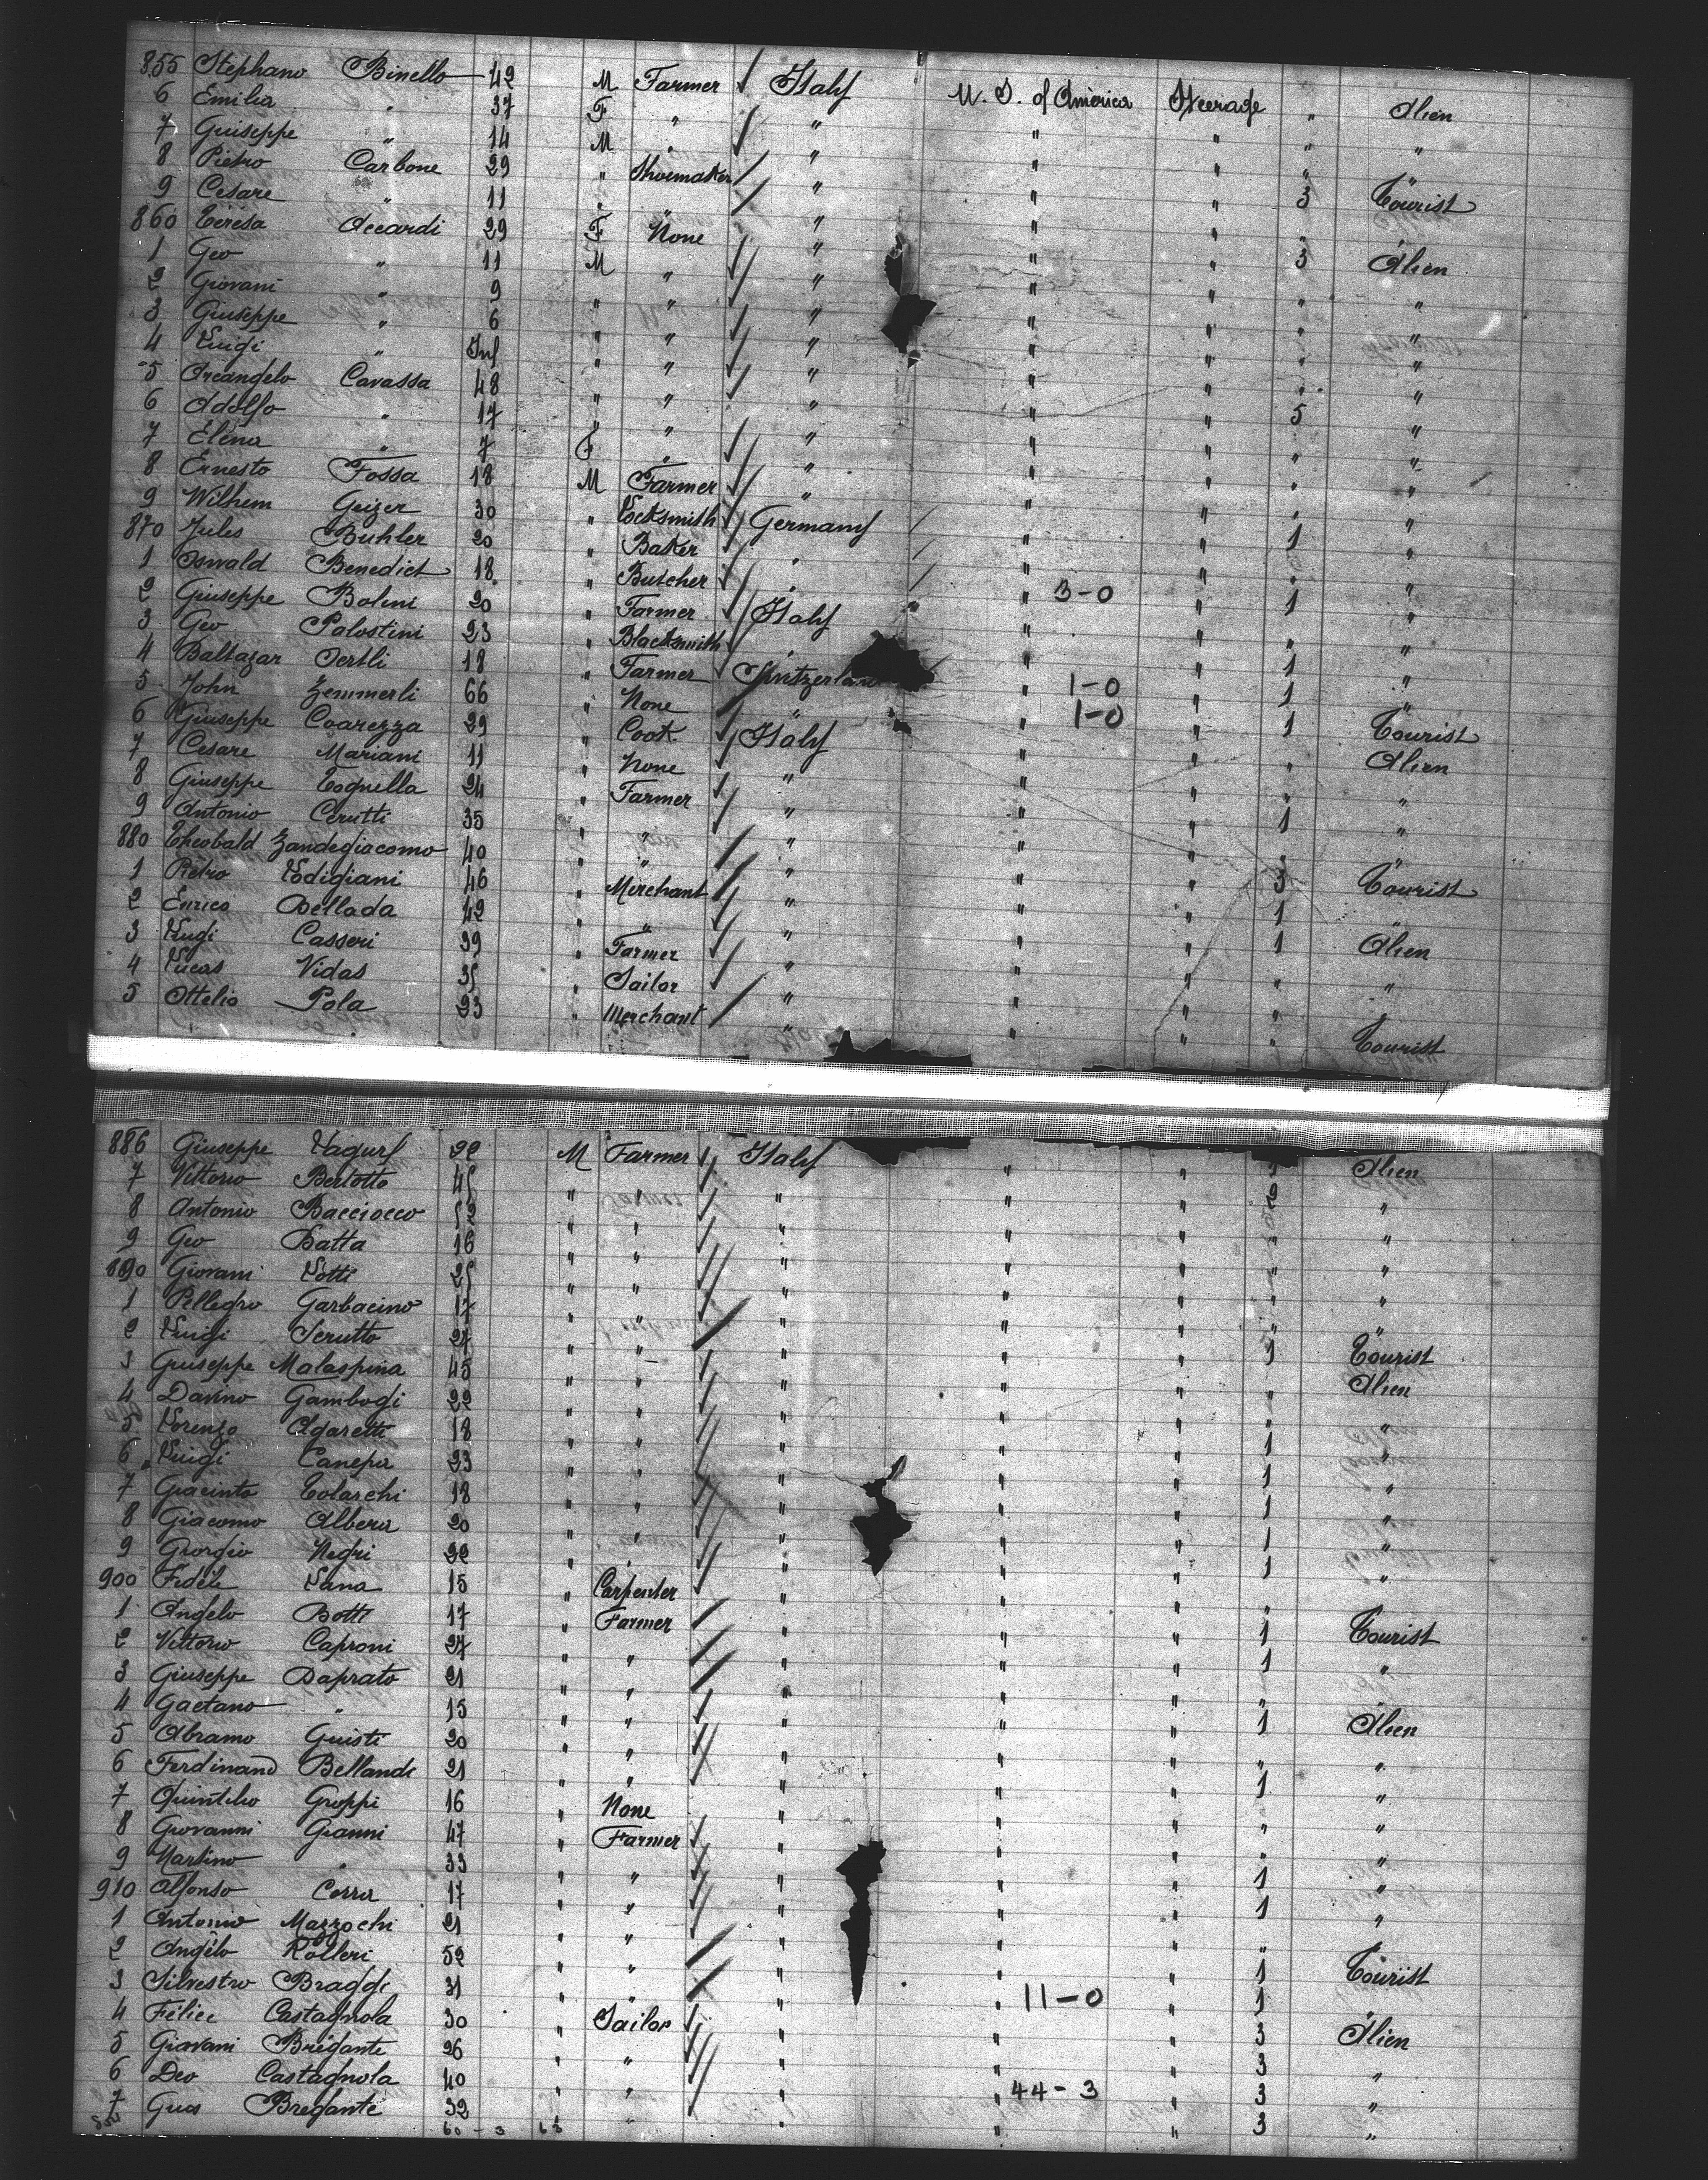 855 Stephano Binello 42 M Farmer Italy U. S. of America Steerage " Alien
6 Emilia " 37 F " " " " " "
7 Guiseppe " 14 M " " " " "
8 Pietro Carbone 29 " Shoemaker " " " 3 Tourist
9 Cesare " 11 " " " " " "
860 Teresa Accardi 29 F None " " " 3 Alien
1 Geo " 11 M " " " " " "
2 Giovani " 9 " " " " " " "
3 Giuseppe " 6 " " " " " " "
4 Luigi " Inf " " " " " " "
5 Arcangelo Cavassa 48 " " " " " 5 "
6 Adolfo " 17 " " " " " " "
7 Elena " 7 F " " " " " "
8 Ernesto Fossa 18 M Farmer " " " " "
9 Wilhem Geizer 30 " Locksmith Germany " " 1 "
870 Jules Buhler 20 " Baker " " " " "
1 Oswald Benedict 18 " Butcher " " 3-0 " 1 "
2 Giuseppe Bolini 20 " Farmer Italy " " " "
3 Geo Palostini 23 " Blacksmith " " " 1 "
4 Baltazar Oertli 18 " Farmer Switzerland " 1-0 " 1 "
5 John Zemmerli 66 " None " " 1-0 " 1 Tourist
6 Giuseppe Coarezza 29 " Cook Italy " " " Alien
7 Cesare Mariani 11 " None " " " " "
8 Giuseppe Tognella 24 " Farmer " " " 1 "
9 Antonio Cerutti 35 " " " " " " "
880 Theobald Zandegiacomo 40 " " " " " 3 Tourist
1 Pietro Lodigiani 46 " Merchant " " " 1 "
2 Enrico Dellada 42 " " " " " 1 Alien
3 Luigi Casseri 39 " Farmer " " " " "
4 Lucas Vidas 35 " Sailor " " " "
5 Ottelio Pola 23 " Merchant " " " " Tourist
886 Giuseppe 22 M Farmer Italy " " 1 Alien
7 Vittorio Bertotto 45 " " " " " 2 "
8 Antonio Bacciocco 52 " " " " " " "
9 Geo Batta 16 " " " " " " "
890 Giovani Lotti 25 " " " " " " "
1 Pellegro Garbacino 17 " " " " " " "
2 Luigi Scrutto 27 " " " " " 1 Tourist
3 Giuseppe Malaspina 45 " " " " " " Alien
4 Davino Gambogi 22 " " " " " " "
5 Lorenzo Agaretti 18 " " " " " 1 "
6 Luigi Canepa 23 " " " " " 1 "
7 Giacinto Tolarchi 18 " " " " " 1 "
8 Giacomo Albera 20 " " " " " 1 "
9 Giorgio Negri 22 " " " " " 1 "
900 Fidele Lana 15 " Carpenter " " " " "
1 Angelo Botti 17 " Farmer " " " 1 Tourist
2 Vittorio Caproni 27 " " " " " 1 "
3 Giuseppe Daprato 21 " " " " " " "
4 Gaetano " 15 " " " " " 1 Alien
5 Abramo Guisti 20 " " " " " " "
6 Ferdinand Bellandi 21 " " " " " 1 "
7 Quintilio Groppi 16 " None " " " " "
8 Giovanni Gianni 47 " Farmer " " " " "
9 Martino " 33 " " " " " 1 "
910 Alfonso Cerra 17 " " " " " 1 "
1 Antonio Mazzochi 21 " " " " " " "
2 Angelo Rolleri 52 " " " " " 1 Tourist
3 Silvestro Braggi 31 " " " " 11-0 " 1 "
4 Felice Castagnola 30 " Sailor " " " 3 Alien
5 Giovani Brigante 26 " " " " " 3 "
6 Deo Castagnola 40 " " " " 44-3 " 3 "
7 Gios Bregante 32 " " " " " 3 "
60 - 3 63